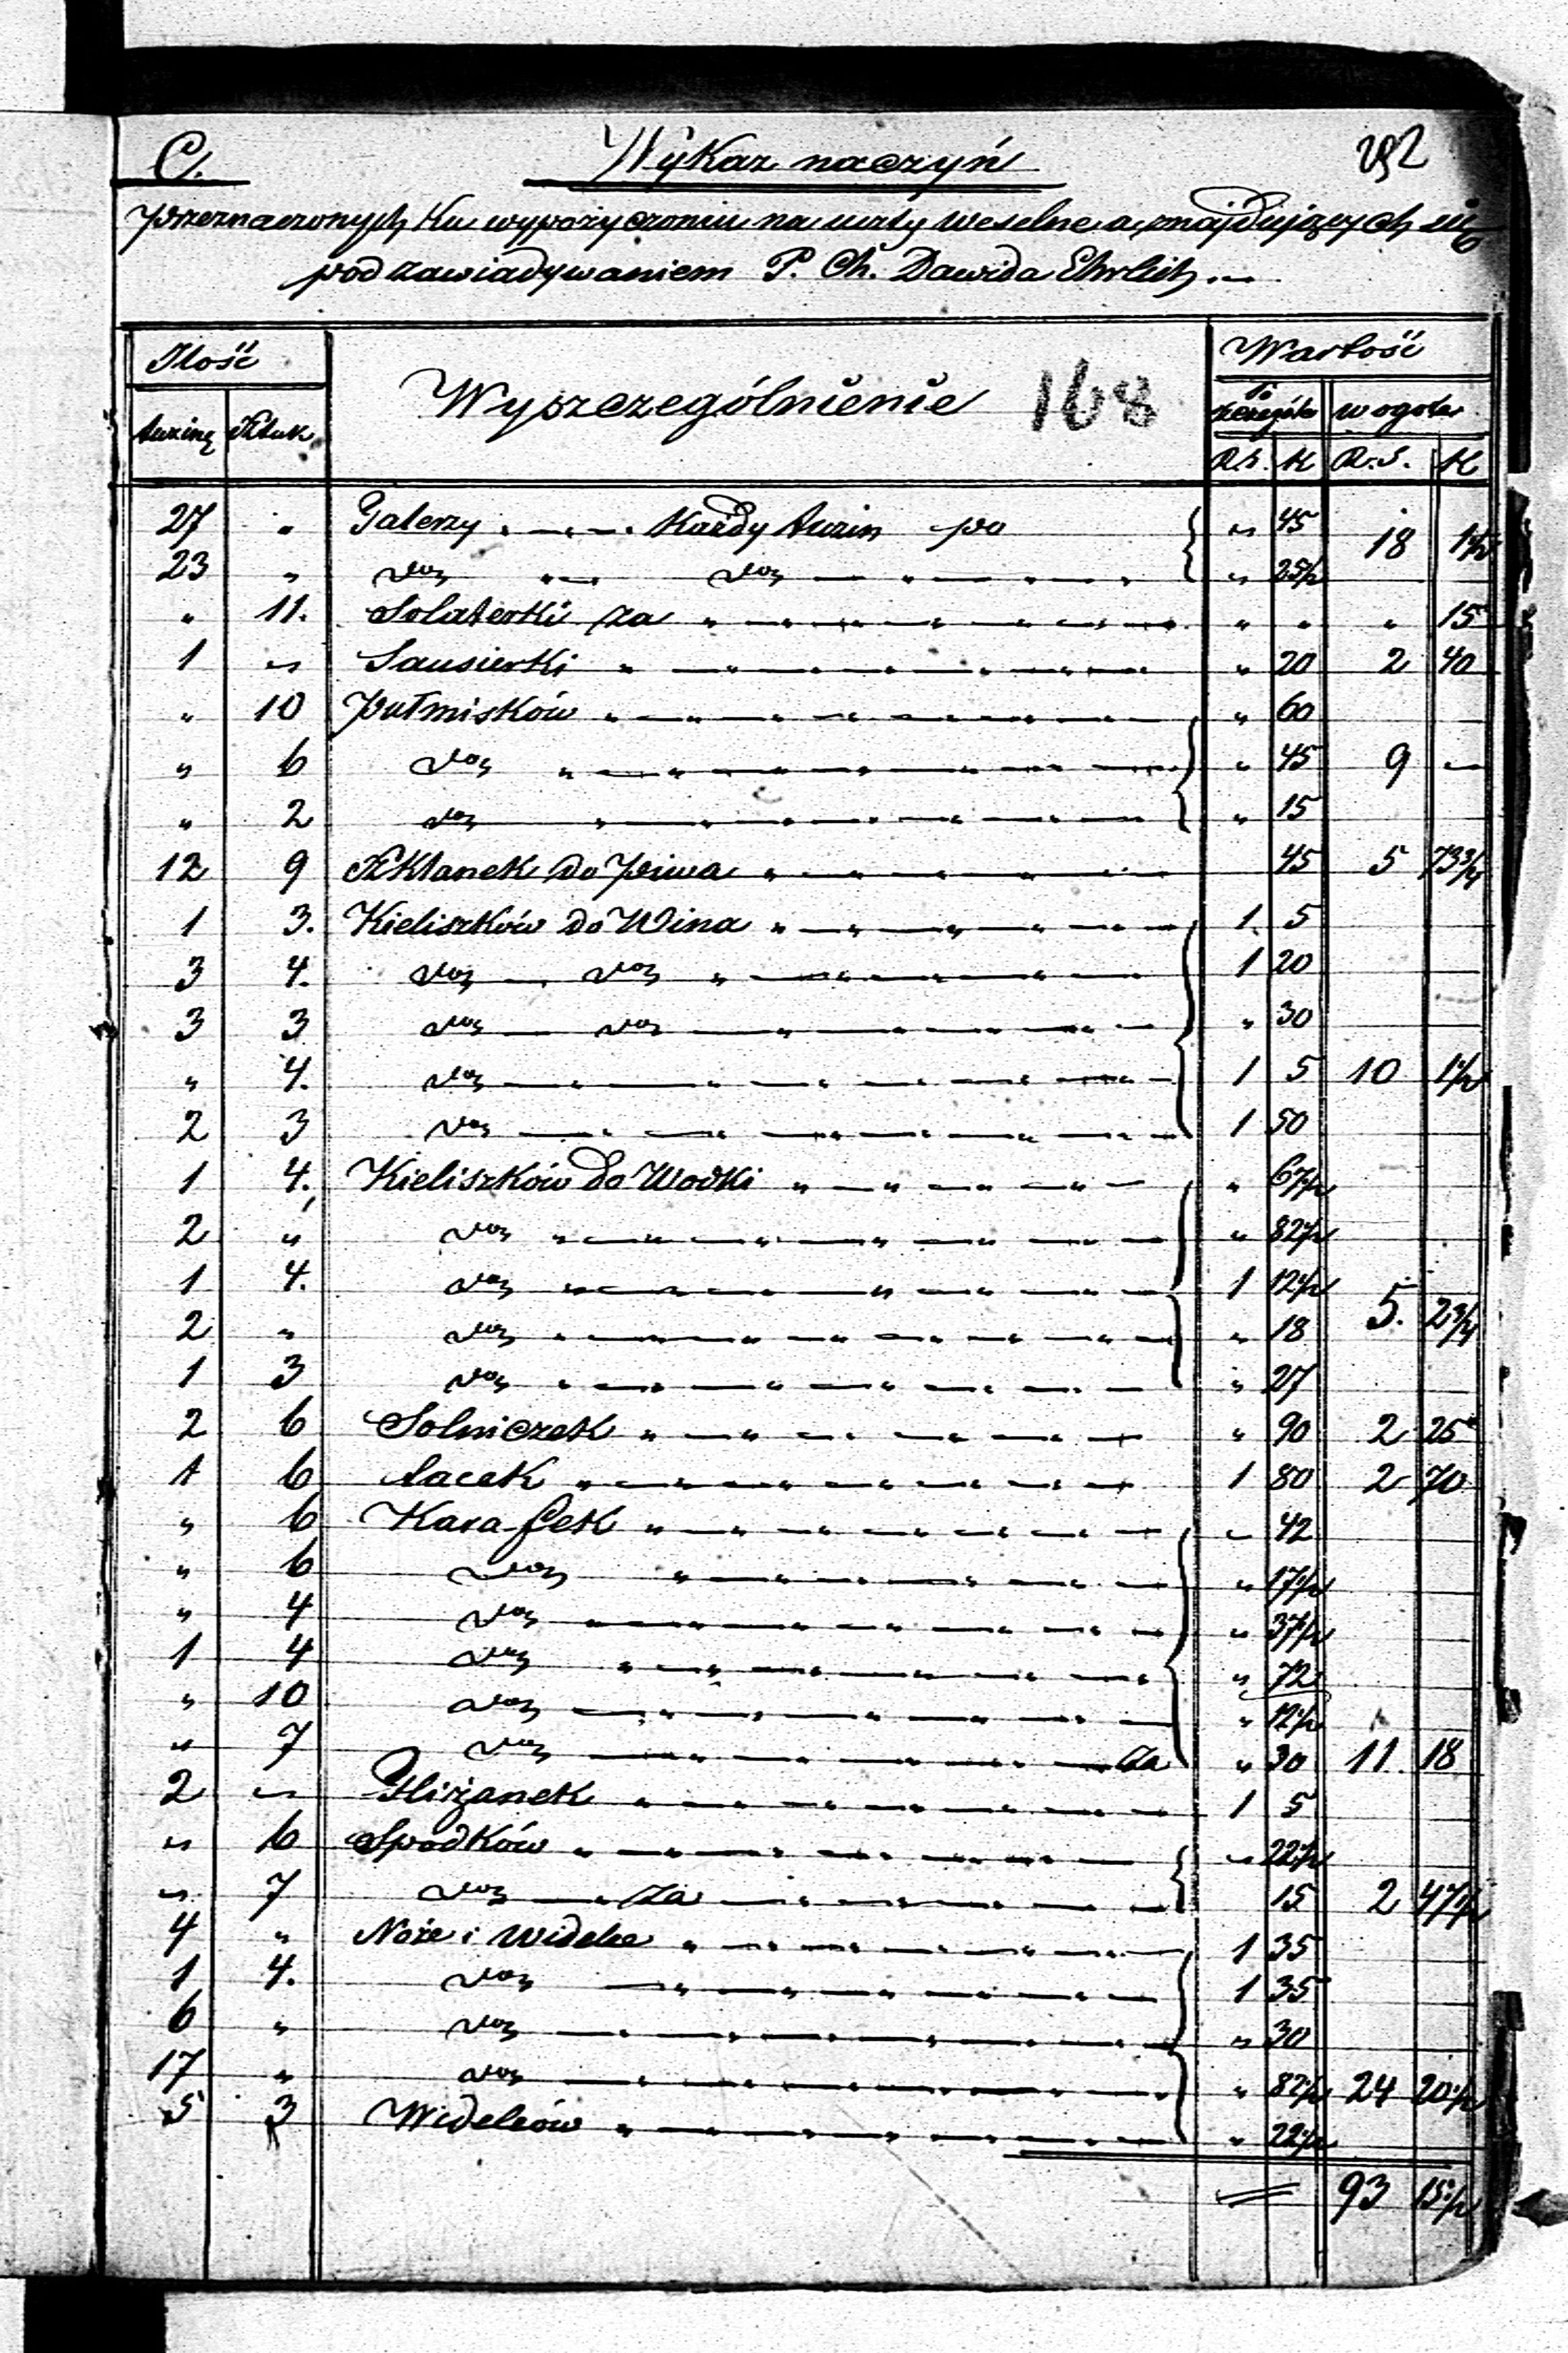 C. Wykaz naczyń 292
przeznaczonych ku wypożyczeniu na uczty weselne a znajdujących się
pod zawiadywaniem P. Ch. Dawida Ehrlich
Ilość Wyszczególnienie 168 Wartość
tuziny Sztuk szczegół w ogóle
R.S. K R.S. K
27 " Talerzy " — " — Każdy tuzin po " 45 18 1½
23 " dto " — dto — " — " 25½
" 11. Solaterki za " — " — " " " " 15
1 " Sausierki " — " — " " 20 2 40
" 10 Pułmisków " — " — " " 60
" 6 dto " — " — " " 45 9 —
" 2 dto " — " — " " 15
12 9 Szklanek do piwa " — " — 45 5 73¾
1 3. Kieliszków do Wina " — " — 1. 5
3 4. dto — dto " — " — 1 20
3 3 dto — dto — " — " 30
" 4. dto — " — " — 1 5 10 1½
2 3 dto — " — " — 1 50
1 4. Kieliszków do Wodki " — " — " 67½
2 " dto " — " — " 82½
1 4. dto " — " — 1 12½
2 " dto " — " — " 18 5. 2¾
1 3 dto " — " — " 27
2 6 Solniczek " — " — " 90 2 25
1 6 tacek " — " — 1 80 2 70
" 6 Karafek " — " — " 42
" 6 dto " — " — " 17½
" 4 dto " — " — " 37½
1 4 dto " — " — " 72
" 10 dto — " — " 12½
" 7 dto — " — za " 30 11. 18
2 " Fliżanek " — " — 1 5
" 6 Spodków " — " — " 22½
" 7 dto — " za — " — 15 2 47½
4 " Noże i Widelce " — " — 1 35
1 4. dto — " — " — 1 35
6 " dto — " — " — " 30
17 " dto — " — " — " 82½ 24 20½
5 3 Widelców " — " — " 22½
93 15½